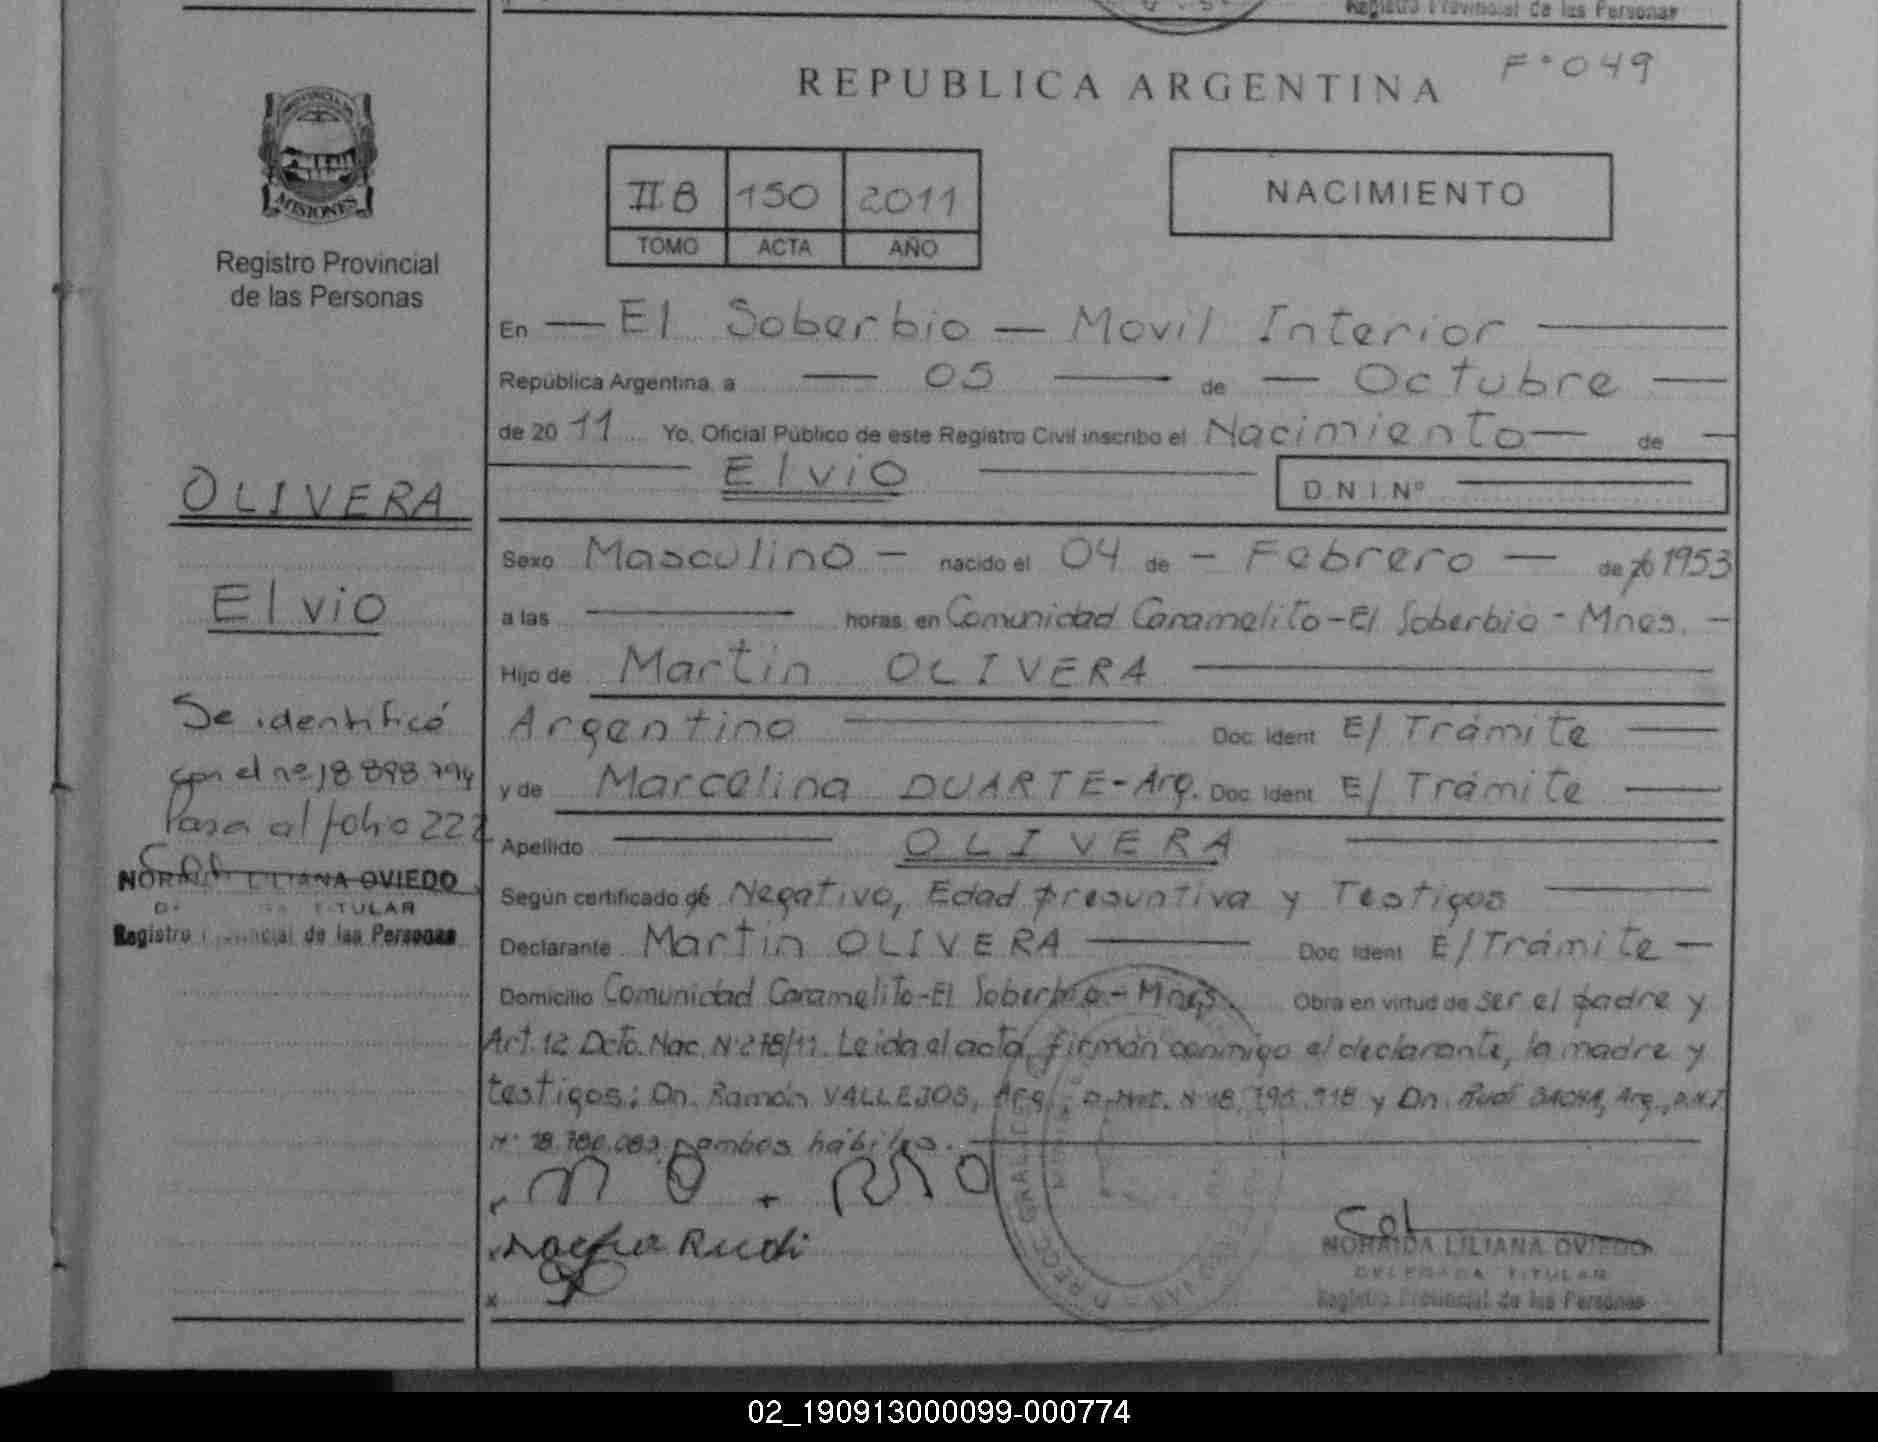 Registro Provincial de las Personas
REPUBLICA ARGENTINA
F° 049
PROVINCIA DE
MISIONES
Registro Provincial
de las Personas
II B 150 2011
TOMO ACTA AÑO
NACIMIENTO
En — El Soberbio — Movil Interior —
República Argentina, a — 05 — de — Octubre —
de 20 11 Yo, Oficial Público de este Registro Civil inscribo el Nacimiento — de —
— Elvio —
D.N.I. Nº —
Sexo Masculino — nacido el 04 de — Febrero — de 1953
a las — horas en Comunidad Caramelito - El Soberbio - Mnes. —
Hijo de Martin OLIVERA —
Argentino — Doc. Ident. E/ Trámite —
y de Marcelina DUARTE - Arg. Doc. Ident. E/ Trámite —
Apellido — OLIVERA —
Según certificado de Negativo, Edad presuntiva y Testigos —
Declarante Martin OLIVERA — Doc. Ident. E/ Trámite —
Domicilio Comunidad Caramelito - El Soberbio - Mnes. Obra en virtud de ser el padre y
Art. 12 Dcto. Nac. Nº 278/11. Leida el acta, firman conmigo el declarante, la madre y
testigos: Dn. Ramón VALLEJOS, Arg., Nº 18.795.918 y Dn. Rudi Arg., D.N.I.
Nº 18.780.083 ambos hábiles. —
Rudi
NORAIDA LILIANA OVIEDO
DELEGADA TITULAR
Registro Provincial de las Personas
OLIVERA
Elvio
Se identificó
con el nº 18 898 794
Pasa al folio 222
NORAIDA LILIANA OVIEDO
TITULAR
Registro Provincial de las Personas
02_190913000099-000774